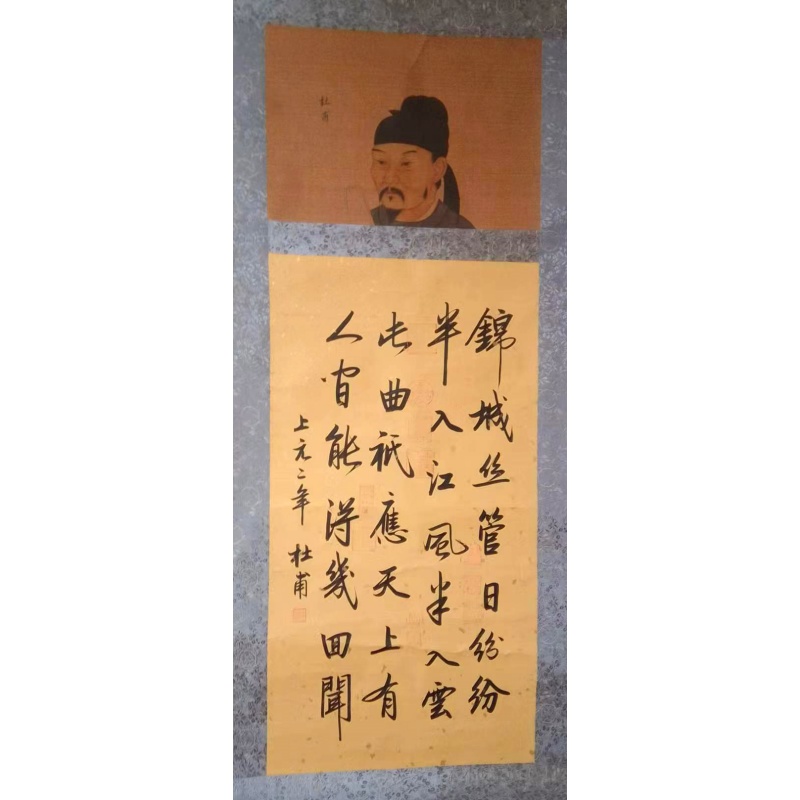 杜甫
錦城丝管日纷纷
半入江風半入雲
此曲祇應天上有
人间能得幾回聞
上元二年 杜甫